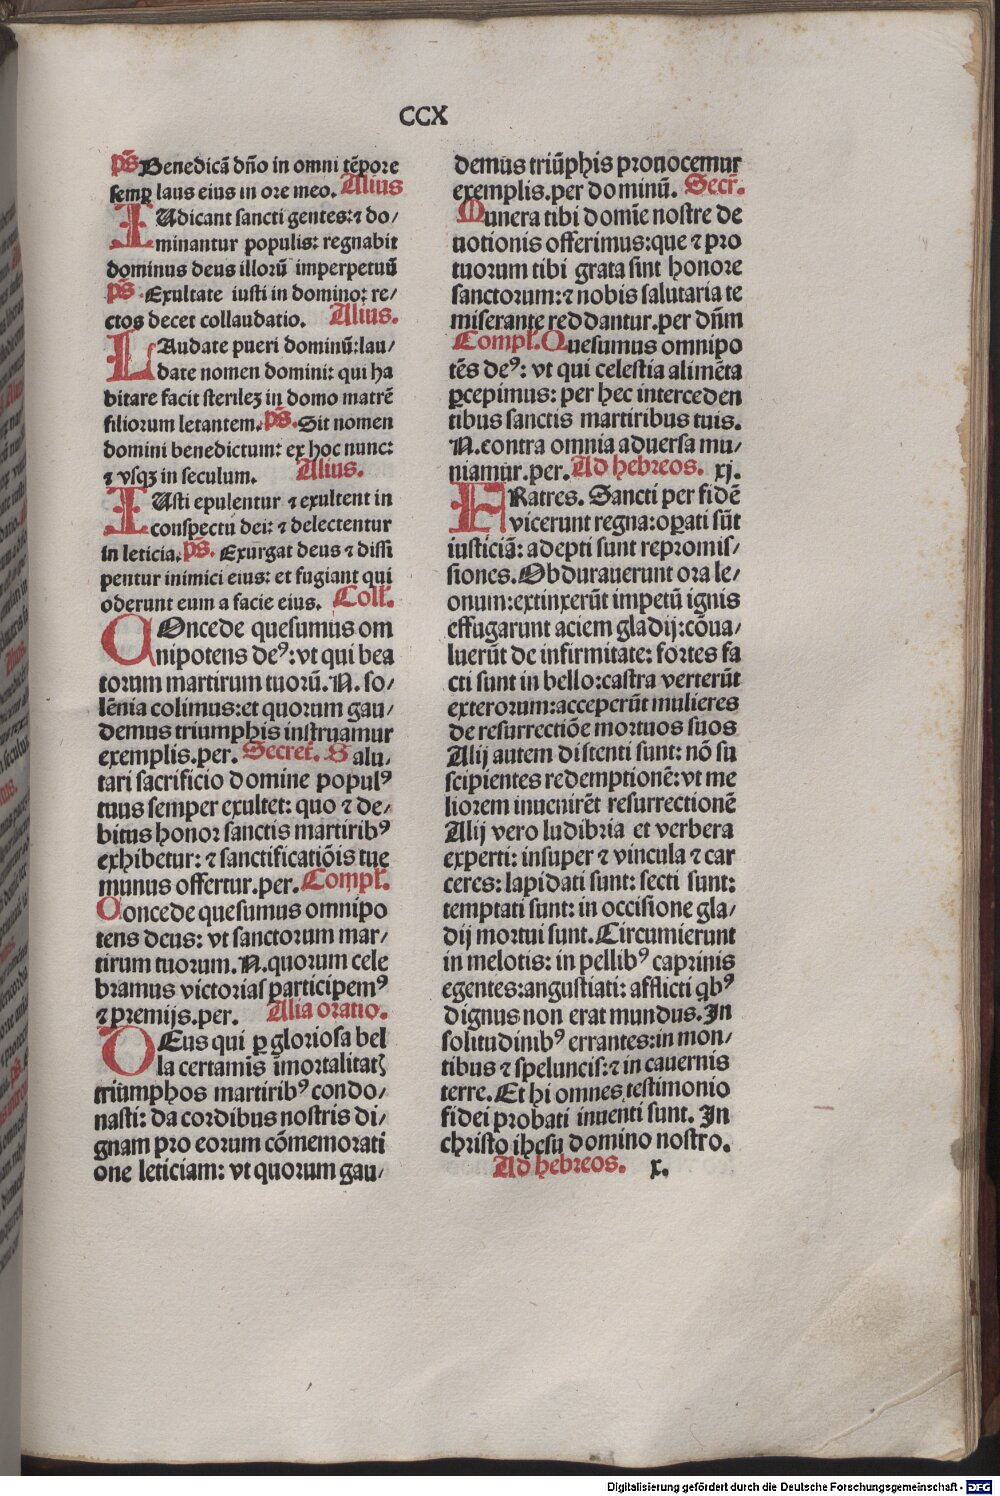 CCX
ps̄ Benedicā dn̄o in omni tēpore
semꝑ laus eius in ore meo. Alius
IUdicant sancti gentes: ⁊ do/
minantur populis: regnabit
dominus deus illorū imperpetuū
ps̄. Exultate iusti in domino: re/
ctos decet collaudatio. Alius.
LAudate pueri dominū: lau/
date nomen domini: qui ha
bitare facit sterileȝ in domo matrē
filiorum letantem. ps̄. Sit nomen
domini benedictum: ex hoc nunc:
⁊ vsqȝ in seculum. Alius.
IUsti epulentur ⁊ exultent in
conspectu dei: ⁊ delectentur
in leticia. ps̄. Exurgat deus ⁊ dissi
pentur inimici eius: et fugiant qui
oderunt eum a facie eius. Coll̄.
COncede quesumus om
nipotens deꝰ: vt qui bea
torum martirum tuorū. N. so/
lēnia colimus: et quorum gau/
demus triumphis instruamur
exemplis. per. Secret̄. Salu/
tari sacrificio domine populꝰ
tuus semper exultet: quo ⁊ de/
bitus honor sanctis martiribꝰ
exhibetur: ⁊ sanctificatiōis tue
munus offertur. per. Compl̄.
Concede quesumus omnipo
tens deus: vt sanctorum mar/
tirum tuorum. N. quorum cele
bramus victorias participemꝰ
⁊ premijs. per. Alia oratio.
DEus qui ꝑ gloriosa bel
la certamīs īmortalitatꝭ
triūmphos martiribꝰ condo/
nasti: da cordibus nostris di/
gnam pro eorum cōmemorati
one leticiam: vt quorum gau/
demus triūphis prouocemur
exemplis. per dominū. Secr̄.
Munera tibi domīe nostre de
uotionis offerimus: que ⁊ pro
tuorum tibi grata sint honore
sanctorum: ⁊ nobis salutaria te
miserante reddantur. per dn̄m
Compl̄. Quesumus omnipo
tēs deꝰ: vt qui celestia alimēta
ꝑcepimus: per hec interceden
tibus sanctis martiribus tuis.
N. contra omnia aduersa mu/
niamur. per. Ad hebreos. xj.
FRatres. Sancti per fidē
vicerunt regna: oꝑati sūt
iusticiā: adepti sunt repromis/
siones. Obdurauerunt ora le/
onum: extinxerūt impetū ignis
effugarunt aciem gladij: cōua/
luerūt de infirmitate: fortes fa
cti sunt in bello: castra verterūt
exterorum: acceperūt mulieres
de resurrectiōe mortuos suos
Alij autem distenti sunt: nō su
scipientes redemptionē: vt me
liorem inuenirēt resurrectionē
Alij vero ludibria et verbera
experti: insuper ⁊ vincula ⁊ car
ceres: lapidati sunt: secti sunt:
temptati sunt: in occisione gla/
dij mortui sunt. Circumierunt
in melotis: in pellibꝰ caprinis
egentes: angustiati: afflicti qbꝰ
dignus non erat mundus. In
solitudinibꝰ errantes: in mon/
tibus ⁊ speluncis: ⁊ in cauernis
terre. Et hi omnes testimonio
fidei probati inuenti sunt. In
christo ihesu domino nostro.
Ad hebreos. x.
Digitalisierung gefördert durch die Deutsche Forschungsgemeinschaft - DFG